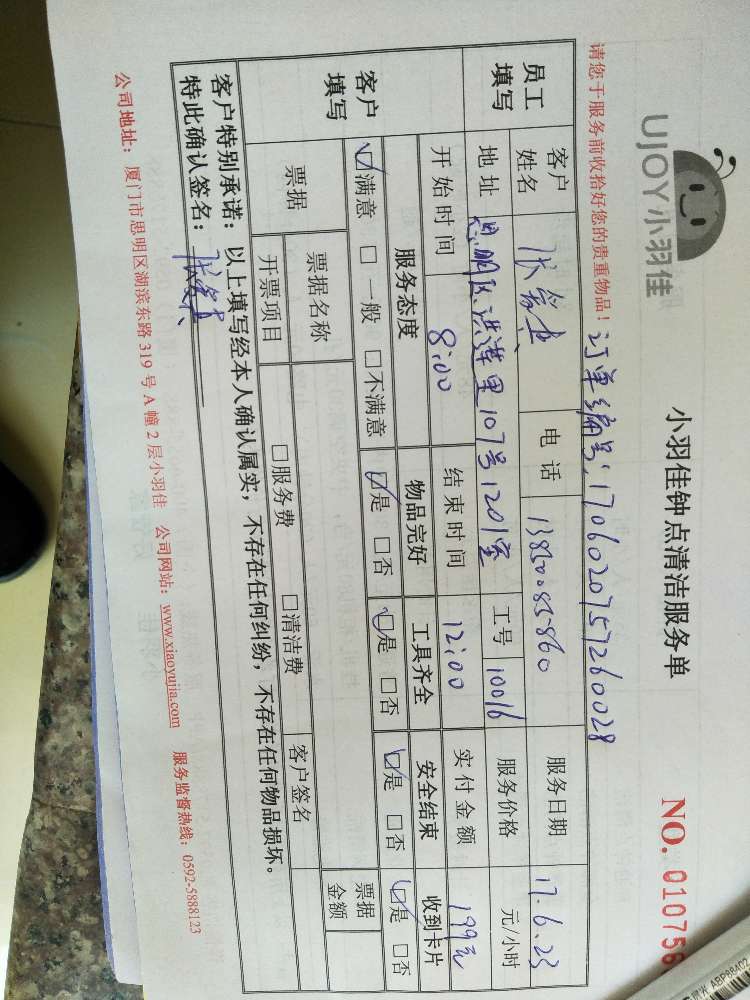 UJOY小羽佳
小羽佳钟点清洁服务单
NO. 010756
请您于服务前收拾好您的贵重物品！ 订单编号：1706020757260028
员工填写
客户姓名 电话 服务日期 17.6.23
地址 思明区洪莲里107号1201室 工号 10016 服务价格 元/小时
开始时间 8:00 结束时间 12:00 实付金额 199元
客户填写
服务态度 物品完好 工具齐全 安全结束 收到卡片
☑满意 □一般 □不满意 ☑是 □否 ☑是 □否 ☑是 □否 ☑是 □否
票据 票据名称 票据金额
开票项目 □服务费 □清洁费 客户签名
客户特别承诺：以上填写经本人确认属实，不存在任何纠纷，不存在任何物品损坏。
特此确认签名：
公司地址：厦门市思明区湖滨东路 319 号 A 幢 2 层小羽佳 公司网站：www.xiaoyujia.com 服务监督热线：0592-5888123
ABP88402